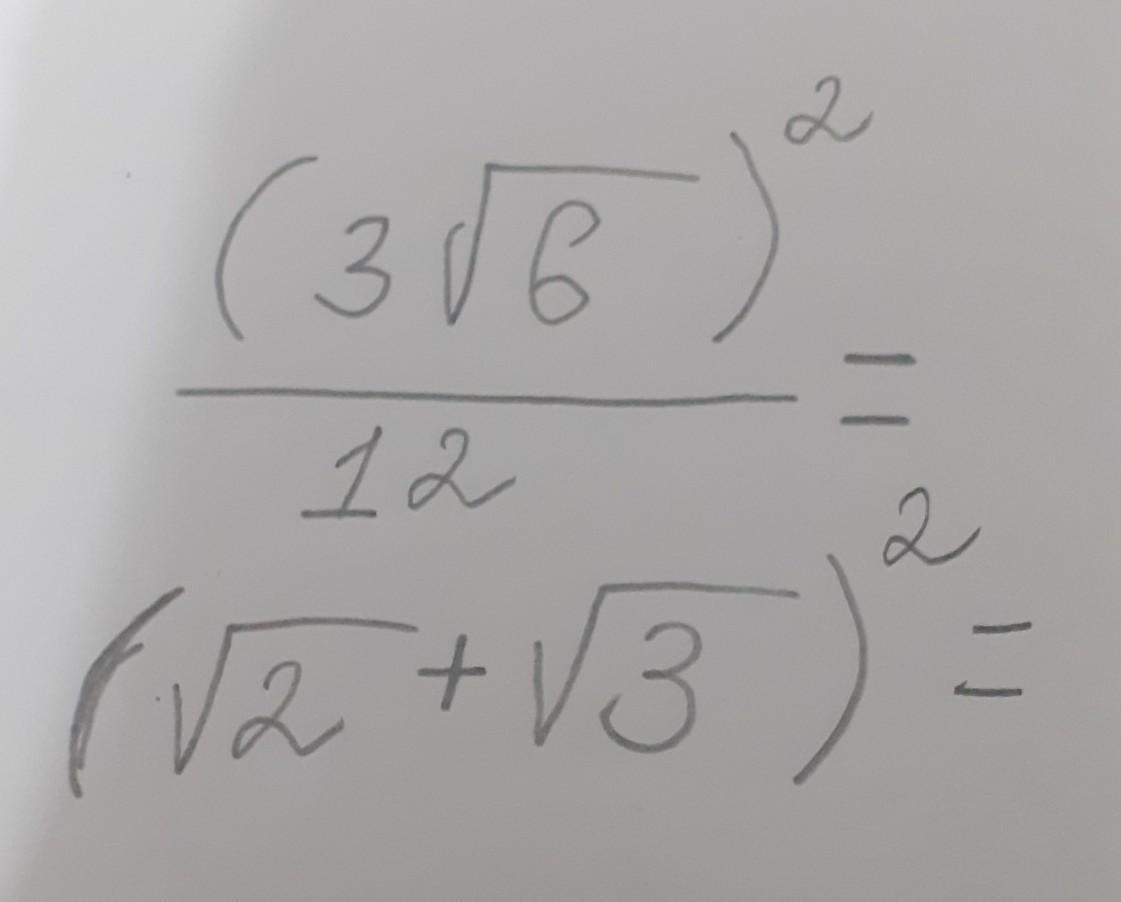 (3√6)²/12 =
(√2 + √3)² =